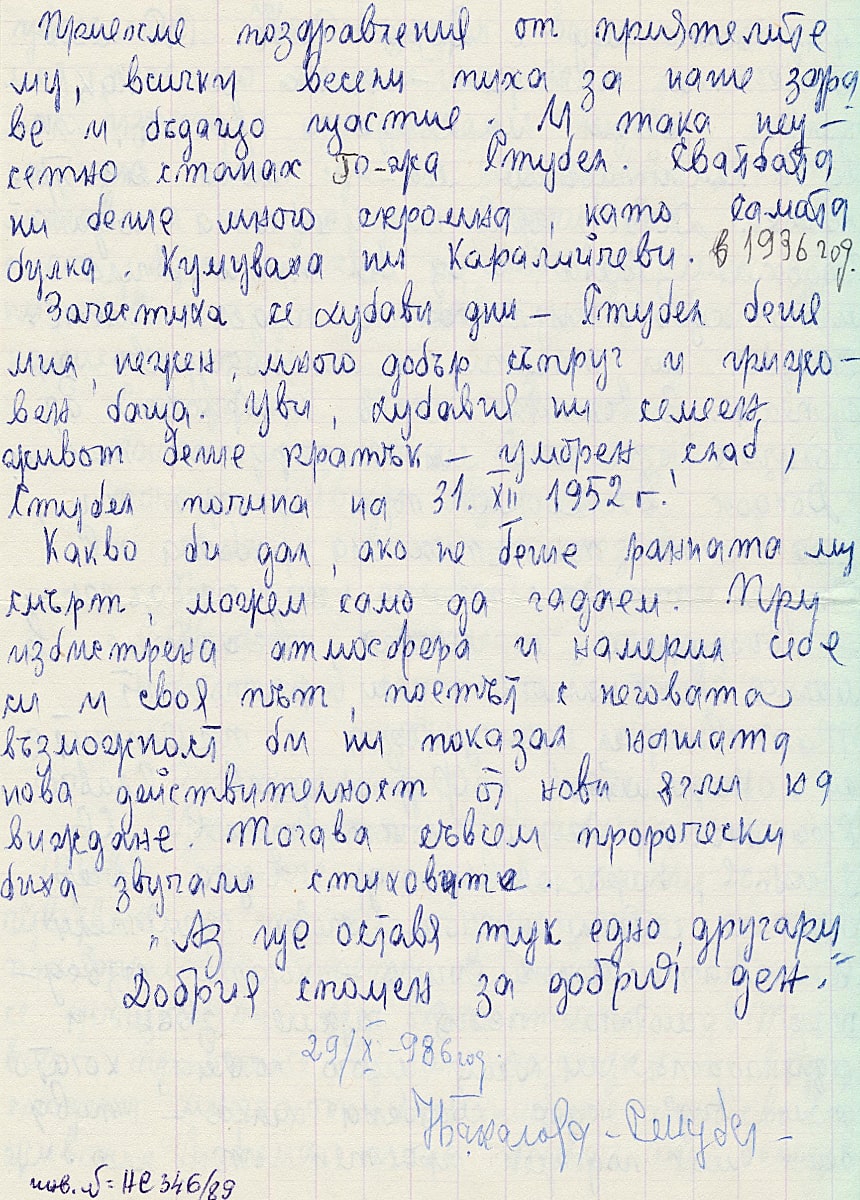 Приехме поздравления от приятелите
му, всички весели пиха за наше здра
ве и бъдащо щастие. И така неу-
сетно станах Г-жа Стубел. Сватбата
ни беше много скромна, като самата
булка. Кумуваха ни Каралийчеви. в 1936 год.
Зачестиха се хубави дни – Стубел беше
мил, нежен, много добър съпруг и грижо-
вен баща. Уви, хубавия ни семеен
живот беше кратък – умбрен, слаб,
Стубел почина на 31. XII 1952 г.
Какво би дал, ако не беше ранната му
смърт, можем само да гадаем. При
избистрена атмосфера и намерил себе
си и своя път, поетът с неговата
възможност би ни показал нашата
нова действителност от нови ъгли на
виждане. Тогава съвсем пророчески
биха звучали стиховете.
„Аз ще оставя тук едно, другари
Добрия спомен за добрия ден."
29/X -986 год.
Стубел –
инв. № = НС 346/89